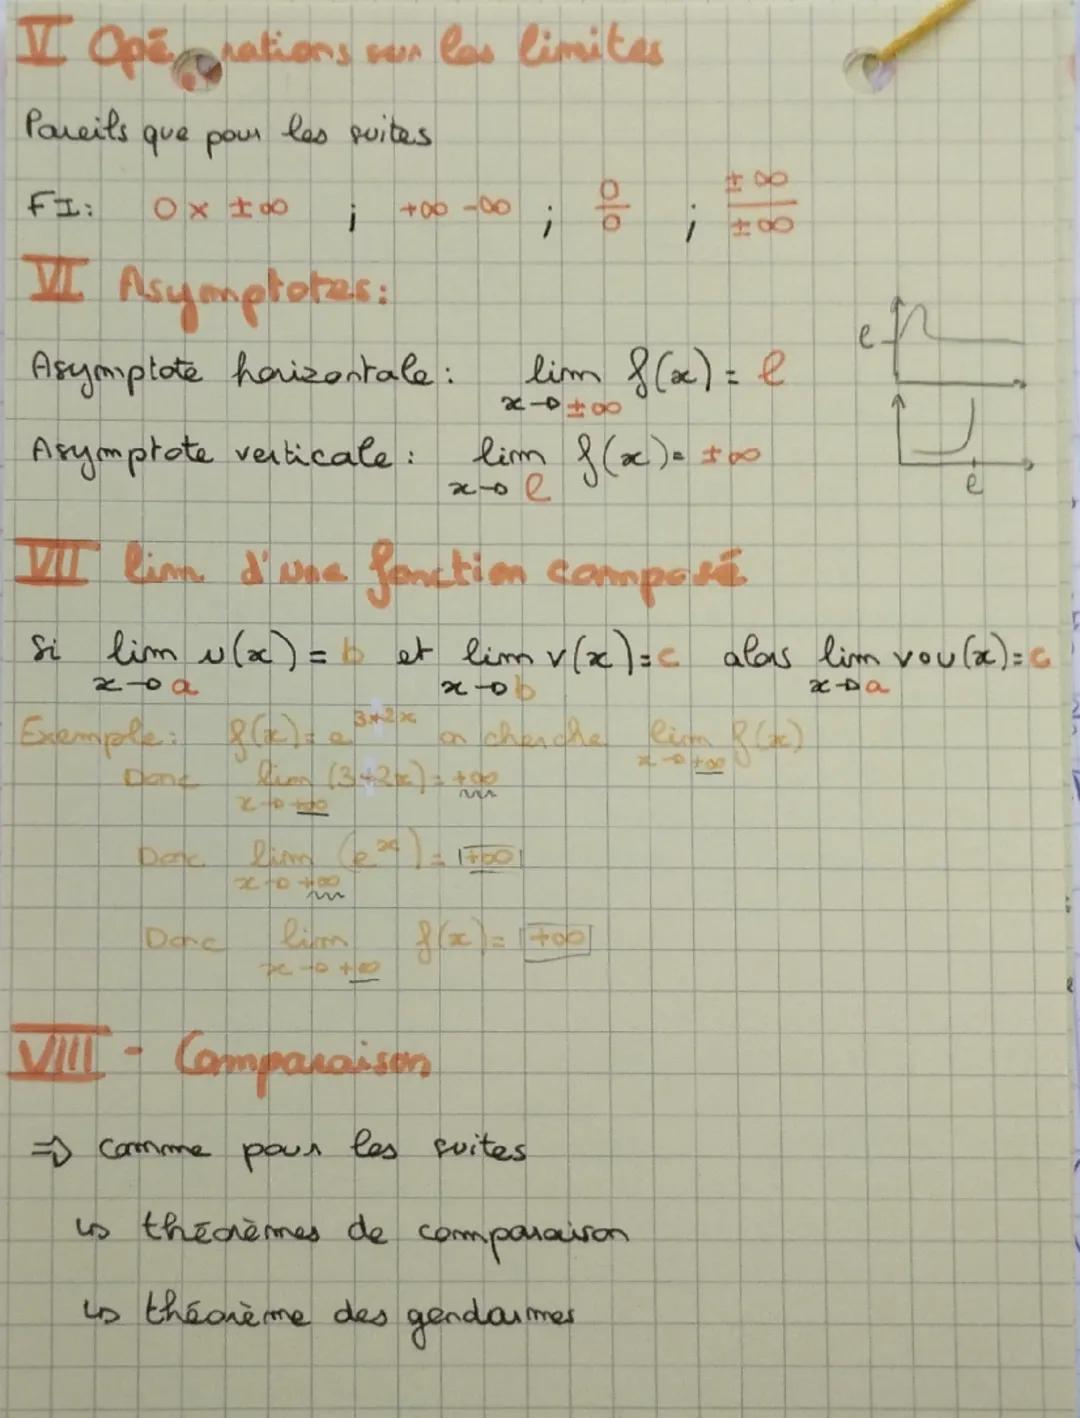 V Opérations sur les limites
Pareils que pour les suites
FI: 0 × ±∞ ; +∞ -∞ ; 0/0 ; ±∞/±∞
VI Asymptotes:
Asymptote horizontale : lim f(x) = l
x→±∞
l
Asymptote verticale : lim f(x) = ±∞
x→l
l
VII lim d'une fonction composé
Si lim u(x) = b et lim v(x) = c alors lim vou(x) = c
x→a x→b x→a
Exemple : f(x) = e^(3+2x) on cherche lim f(x)
x→+∞
Donc lim (3+2x) = +∞
x→+∞
Donc lim (e^x) = +∞
x→+∞
Donc lim f(x) = +∞
x→+∞
VIII - Comparaison
⇒ comme pour les suites
↳ théorèmes de comparaison
↳ théorème des gendarmes